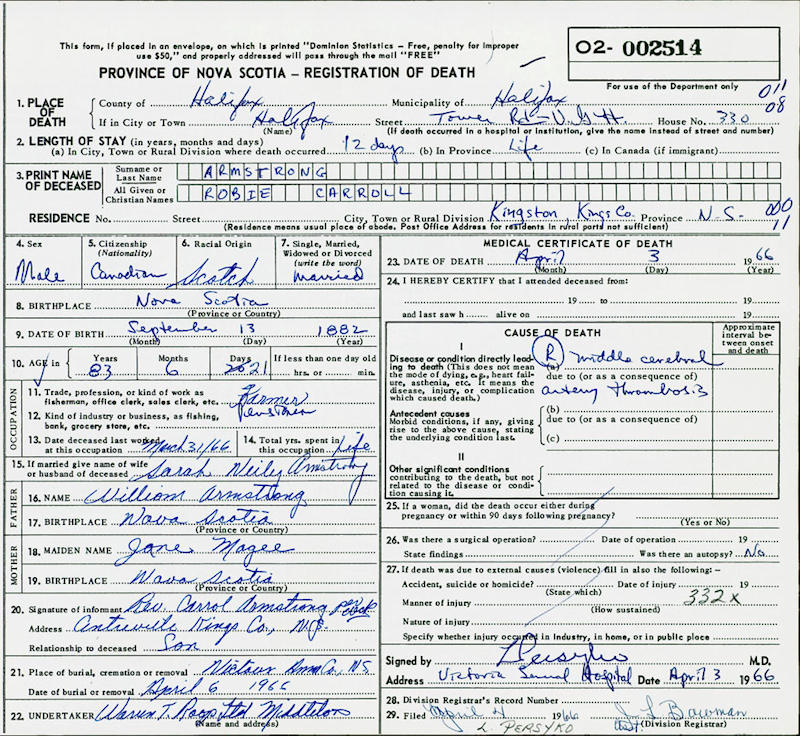 This form, if placed in an envelope, on which is printed "Dominion Statistics – Free, penalty for improper
use $50," and properly addressed will pass through the mail "FREE"
O2- 002514
PROVINCE OF NOVA SCOTIA – REGISTRATION OF DEATH
For use of the Department only 011
08
1. PLACE OF DEATH County of Halifax Municipality of Halifax
If in City or Town Halifax Street Tower Rd - V.G.H House No. 330
(Name) (If death occurred in a hospital or institution, give the name instead of street and number)
2. LENGTH OF STAY (in years, months and days)
(a) In City, Town or Rural Division where death occurred 12 days (b) In Province Life (c) In Canada (if immigrant)
3. PRINT NAME OF DECEASED
Surname or Last Name ARMSTRONG
All Given or Christian Names ROBIE CARROLL
RESIDENCE No. Street City, Town or Rural Division Kingston, Kings Co. Province N.S. 000
11
(Residence means usual place of abode. Post Office Address for residents in rural parts not sufficient)
4. Sex Male
5. Citizenship (Nationality) Canadian
6. Racial Origin Scotch
7. Single, Married, Widowed or Divorced (write the word) Married
8. BIRTHPLACE Nova Scotia
(Province or Country)
9. DATE OF BIRTH September 13 1882
(Month) (Day) (Year)
10. AGE in Years Months Days If less than one day old
83 6 21 hrs. or min.
OCCUPATION
11. Trade, profession, or kind of work as fisherman, office clerk, sales clerk, etc. Farmer
12. Kind of industry or business, as fishing, bank, grocery store, etc. Pensioner
13. Date deceased last worked at this occupation March 31/66
14. Total yrs. spent in this occupation Life
15. If married give name of wife or husband of deceased Sarah Neily Armstrong
FATHER
16. NAME William Armstrong
17. BIRTHPLACE Nova Scotia
(Province or Country)
MOTHER
18. MAIDEN NAME Jane Magee
19. BIRTHPLACE Nova Scotia
(Province or Country)
20. Signature of informant Rev. Carrol Armstrong
Address Kings Co., N.S.
Relationship to deceased Son
21. Place of burial, cremation or removal Co., NS
Date of burial or removal April 6 1966
22. UNDERTAKER Warren T. Roop Ltd Middleton
(Name and address)
MEDICAL CERTIFICATE OF DEATH
23. DATE OF DEATH April 3 1966
(Month) (Day) (Year)
24. I HEREBY CERTIFY that I attended deceased from:
19 to 19
and last saw h alive on 19
CAUSE OF DEATH
Approximate interval between onset and death
I
Disease or condition directly leading to death (This does not mean the mode of dying, e.g., heart failure, asthenia, etc. It means the disease, injury, or complication which caused death.)
(a) R middle cerebral
due to (or as a consequence of)
artery thrombosis
Antecedent causes
Morbid conditions, if any, giving rise to the above cause, stating the underlying condition last.
(b)
due to (or as a consequence of)
(c)
II
Other significant conditions
contributing to the death, but not related to the disease or condition causing it.
25. If a woman, did the death occur either during pregnancy or within 90 days following pregnancy?
(Yes or No)
26. Was there a surgical operation? Date of operation 19
State findings Was there an autopsy? No
27. If death was due to external causes (violence) fill in also the following:-
Accident, suicide or homicide? Date of injury 19
(State which)
Manner of injury 332X
(How sustained)
Nature of injury
Specify whether injury occurred in industry, in home, or in public place
Signed by L Persyko M.D.
Address Victoria General Hospital Date April 3 1966
28. Division Registrar's Record Number
29. Filed April 4 1966 Bowman
L. PERSYKO (Division Registrar)